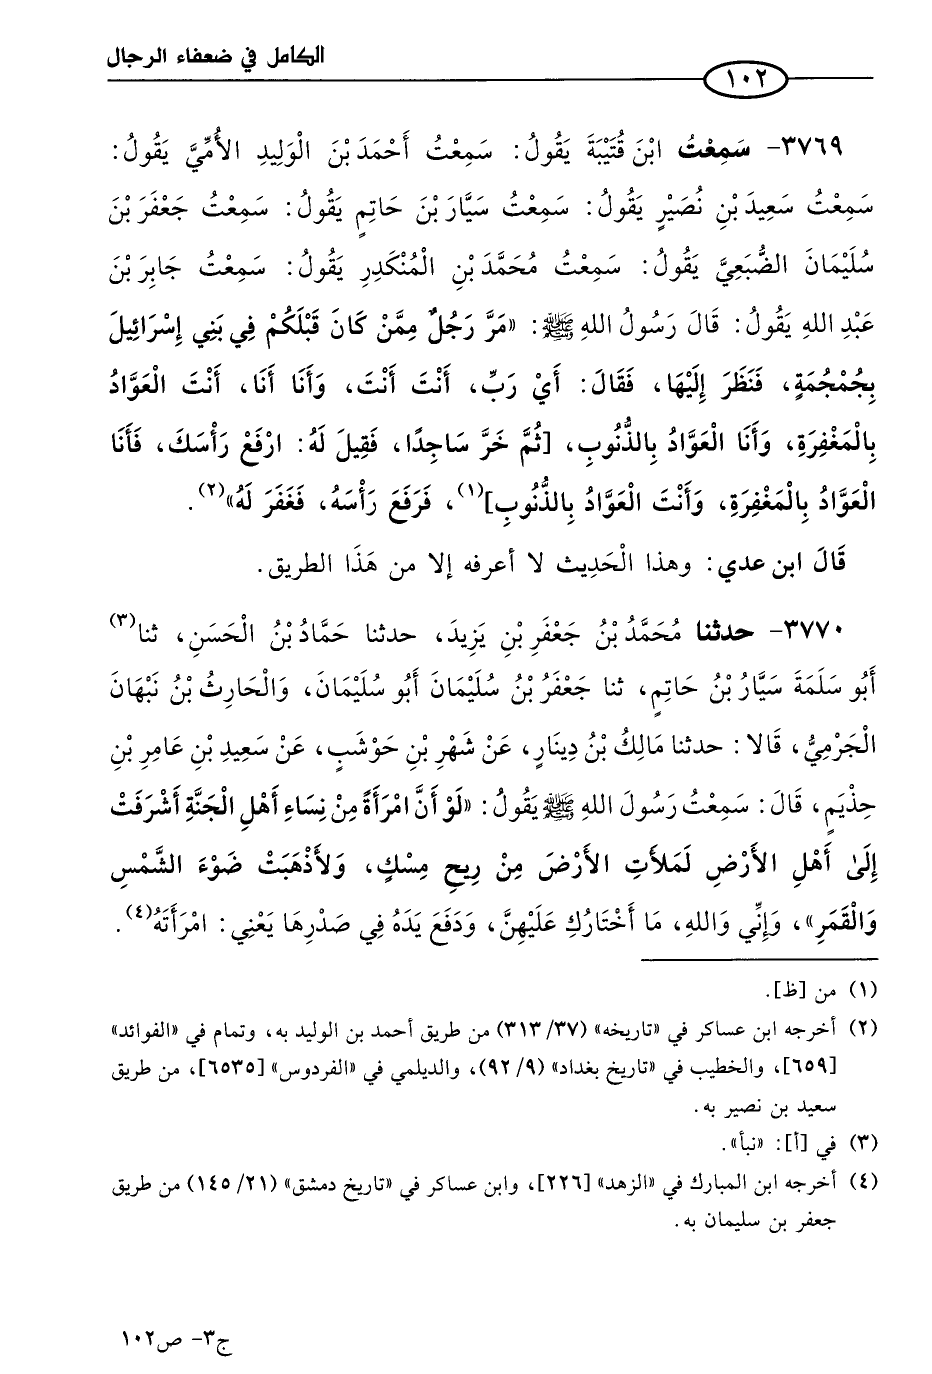 الكامل في ضعفاء الرجال
١٠٢
٣٧٦٩- سَمِعْتُ ابْنَ قُتَيْبَةَ يَقُولُ: سَمِعْتُ أَحْمَدَ بْنَ الْوَلِيدِ الأُمِّيَّ يَقُولُ:
سَمِعْتُ سَعِيدَ بْنِ نُصَيْرٍ يَقُولُ: سَمِعْتُ سَيَّارَ بْنَ حَاتِمٍ يَقُولُ: سَمِعْتُ جَعْفَرَ بْنَ
سُلَيْمَانَ الضُّبَعِيَّ يَقُولُ: سَمِعْتُ مُحَمَّدَ بْنِ الْمُنْكَدِرِ يَقُولُ: سَمِعْتُ جَابِرَ بْنَ
عَبْدِ اللهِ يَقُولُ: قَالَ رَسُولُ اللهِ ﷺ: «مَرَّ رَجُلٌ مِمَّنْ كَانَ قَبْلَكُمْ فِي بَنِي إِسْرَائِيلَ
بِجُمْجُمَةٍ، فَنَظَرَ إِلَيْهَا، فَقَالَ: أَيْ رَبِّ، أَنْتَ أَنْتَ، وَأَنَا أَنَا، أَنْتَ الْعَوَّادُ
بِالْمَغْفِرَةِ، وَأَنَا الْعَوَّادُ بِالذُّنُوبِ، [ثُمَّ خَرَّ سَاجِدًا، فَقِيلَ لَهُ: ارْفَعْ رَأْسَكَ، فَأَنَا
الْعَوَّادُ بِالْمَغْفِرَةِ، وَأَنْتَ الْعَوَّادُ بِالذُّنُوبِ](١)، فَرَفَعَ رَأْسَهُ، فَغَفَرَ لَهُ»(٢).
قَالَ ابن عدي: وهذا الْحَدِيث لا أعرفه إلا من هَذَا الطريق.
٣٧٧٠- حدثنا مُحَمَّدُ بْنُ جَعْفَرِ بْنِ يَزِيدَ، حدثنا حَمَّادُ بْنُ الْحَسَنِ، ثنا(٣)
أَبُو سَلَمَةَ سَيَّارُ بْنُ حَاتِمٍ، ثنا جَعْفَرُ بْنُ سُلَيْمَانَ أَبُو سُلَيْمَانَ، وَالْحَارِثُ بْنُ نَبْهَانَ
الْجَرْمِيُّ، قَالا: حدثنا مَالِكُ بْنُ دِينَارٍ، عَنْ شَهْرِ بْنِ حَوْشَبٍ، عَنْ سَعِيدِ بْنِ عَامِرِ بْنِ
حِذْيَمٍ، قَالَ: سَمِعْتُ رَسُولَ اللهِ ﷺ يَقُولُ: «لَوْ أَنَّ امْرَأَةً مِنْ نِسَاءِ أَهْلِ الْجَنَّةِ أَشْرَفَتْ
إِلَىٰ أَهْلِ الأَرْضِ لَمَلأَتِ الأَرْضَ مِنْ رِيحِ مِسْكٍ، وَلأَذْهَبَتْ ضَوْءَ الشَّمْسِ
وَالْقَمَرِ»، وَإِنِّي وَاللهِ، مَا أَخْتَارُكِ عَلَيْهِنَّ، وَدَفَعَ يَدَهُ فِي صَدْرِهَا يَعْنِي: امْرَأَتَهُ(٤).
(١) من [ظ].
(٢) أخرجه ابن عساكر في «تاريخه» (٣٧/ ٣١٣) من طريق أحمد بن الوليد به، وتمام في «الفوائد»
[٦٥٩]، والخطيب في «تاريخ بغداد» (٩/ ٩٢)، والديلمي في «الفردوس» [٦٥٣٥]، من طريق
سعيد بن نصير به.
(٣) في [أ]: «نبأ».
(٤) أخرجه ابن المبارك في «الزهد» [٢٢٦]، وابن عساكر في «تاريخ دمشق» (٢١/ ١٤٥) من طريق
جعفر بن سليمان به.
ج٣- ص١٠٢